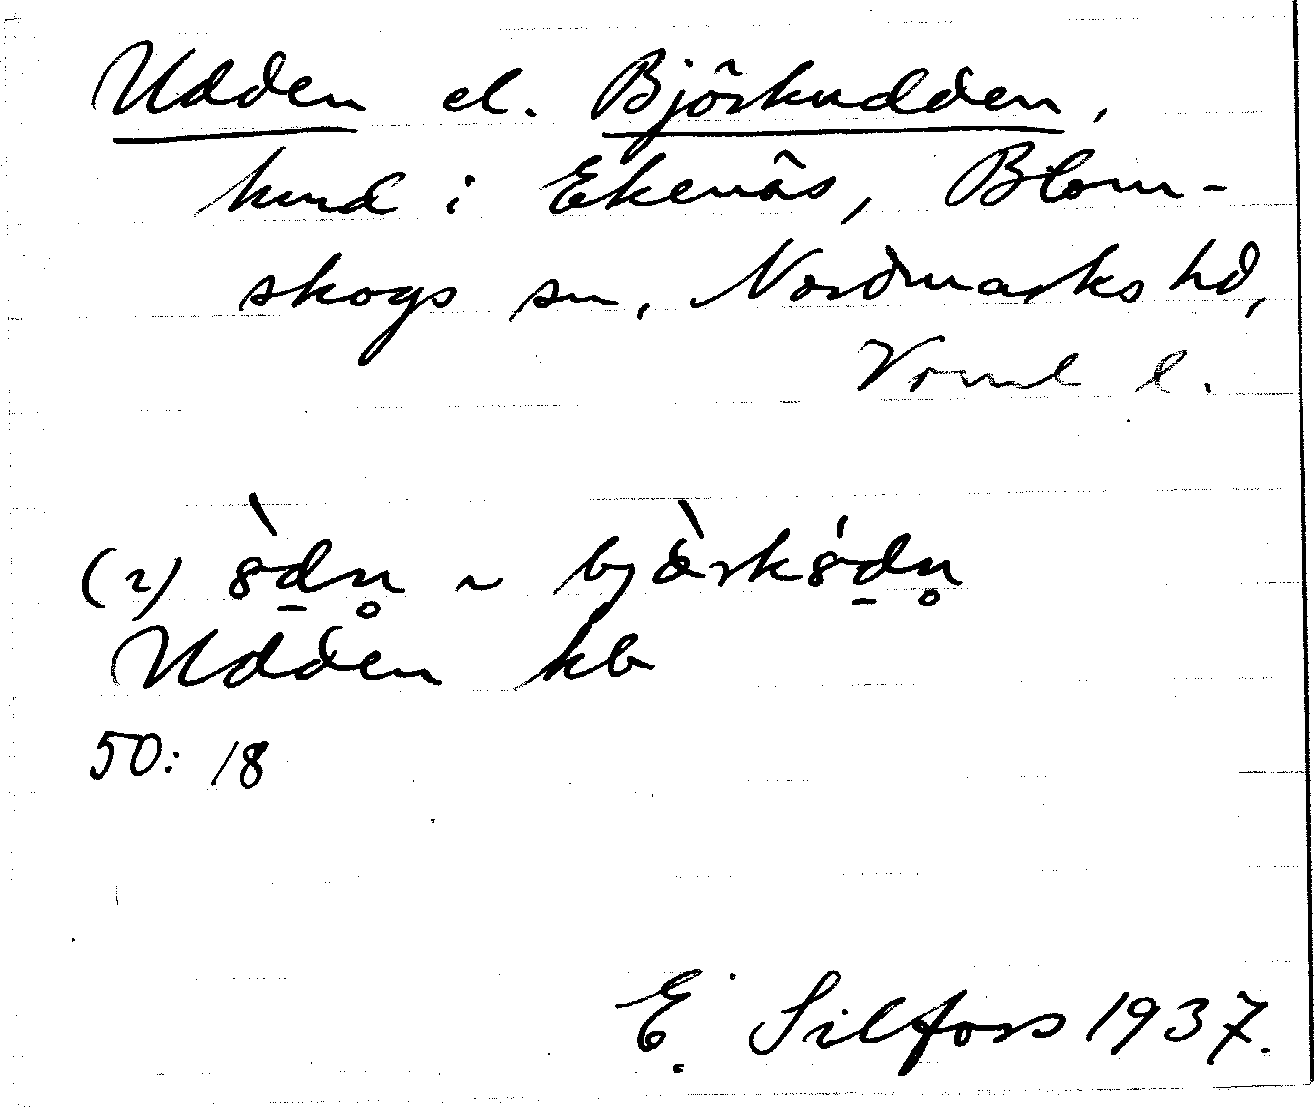 Udden el. Björkudden,
hmd i Ekenäs, Blom-
skogs sn, Nordmarks hd,
Vrml l.
(2) 8̀dn̥ ~ bjæ̀rk8́dn̥
Udden kb
50: 18
E. Silfors 1937.